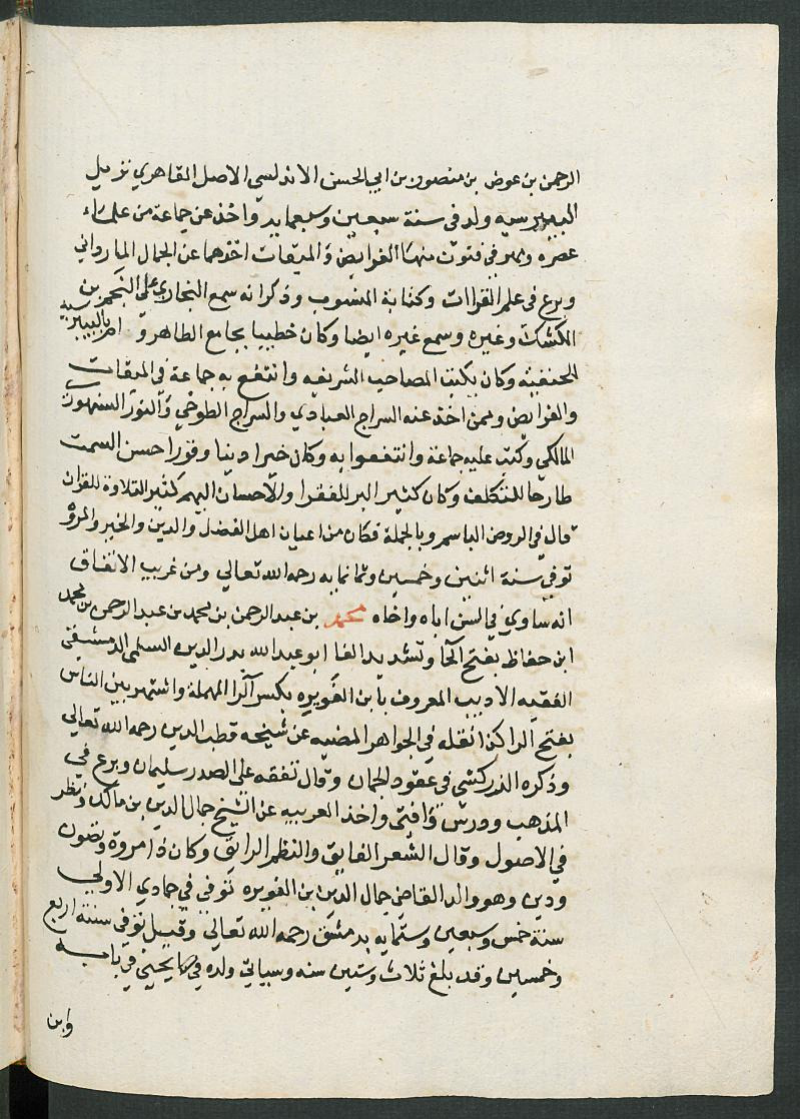 الرحمن بن عوض بن منصور بن ابي الحسن الاندلسي الاصل القاهري نزيل
البيبرسيه ولد في سنة سبعين وسبعمايه واخذ عن جماعة من علماء
عصره ومهر في فنون منها الفرايض والميقات اخذهما عن الجمال المارداني
وبرع في علم القراات وكتابة المنسوب وذكر انه سمع البخاري على النجم بن
الكشك وغيره وسمع غيره ايضا وكان خطيبا بجامع الظاهر و ام بالبيبرسيه
الحنفية وكان يكتب المصاحف الشريفه وانتفع به جماعة في الميقات
والفرايض وممن اخذ عنه السراج العبادي والسراج الطوخي والنور السنهوري
المالكي وكتب عليه جماعة وانتفعوا به وكان خيرا دينا وقورا حسن السمت
طارحا للتكلف وكان كثير البر للفقرا والاحسان اليهم كثير التلاوة للقران
قال في الروض الباسم وبالجملة فكان من اعيان اهل الفضل والدين والخير والمروة
توفي سنة اثنين وخمسين وثمانمايه رحمه الله تعالي ومن غريب الاتفاق
انه ساوي في السن اباه واخاه محمد بن عبد الرحمن بن محمد بن عبد الرحمن بن محمد
ابن حفاظ بفتح الحا وتشديد الفا ابو عبد الله بدر الدين السلمي الدمشقي
الفقيه الاديب المعروف بابن الفويره بكسر الرا المهملة واشتهر بين الناس
بفتح الرا كذا نقله في الجواهر المضيه عن شيخه قطب الدين رحمه الله تعالي
وذكره الزركشي في عقود الجمان وقال تفقه على الصدر سليمان وبرع في
المذهب ودرس وافتي واخذ العربيه عن الشيخ جمال الدين بن مالك ونظر
في الاصول وقال الشعر الفايق والنظم الرايق وكان ذا مروة وتصون
ودين وهو والد القاضي جمال الدين ابن الفويره توفي في جمادي الاولي
سنة خمس وسبعين وستمايه بدمشق رحمه الله تعالي وقيل توفي سنة اربع
وخمسين وقد بلغ ثلاث وستين سنه وسياتي ولده يحيي في بابه
وابن